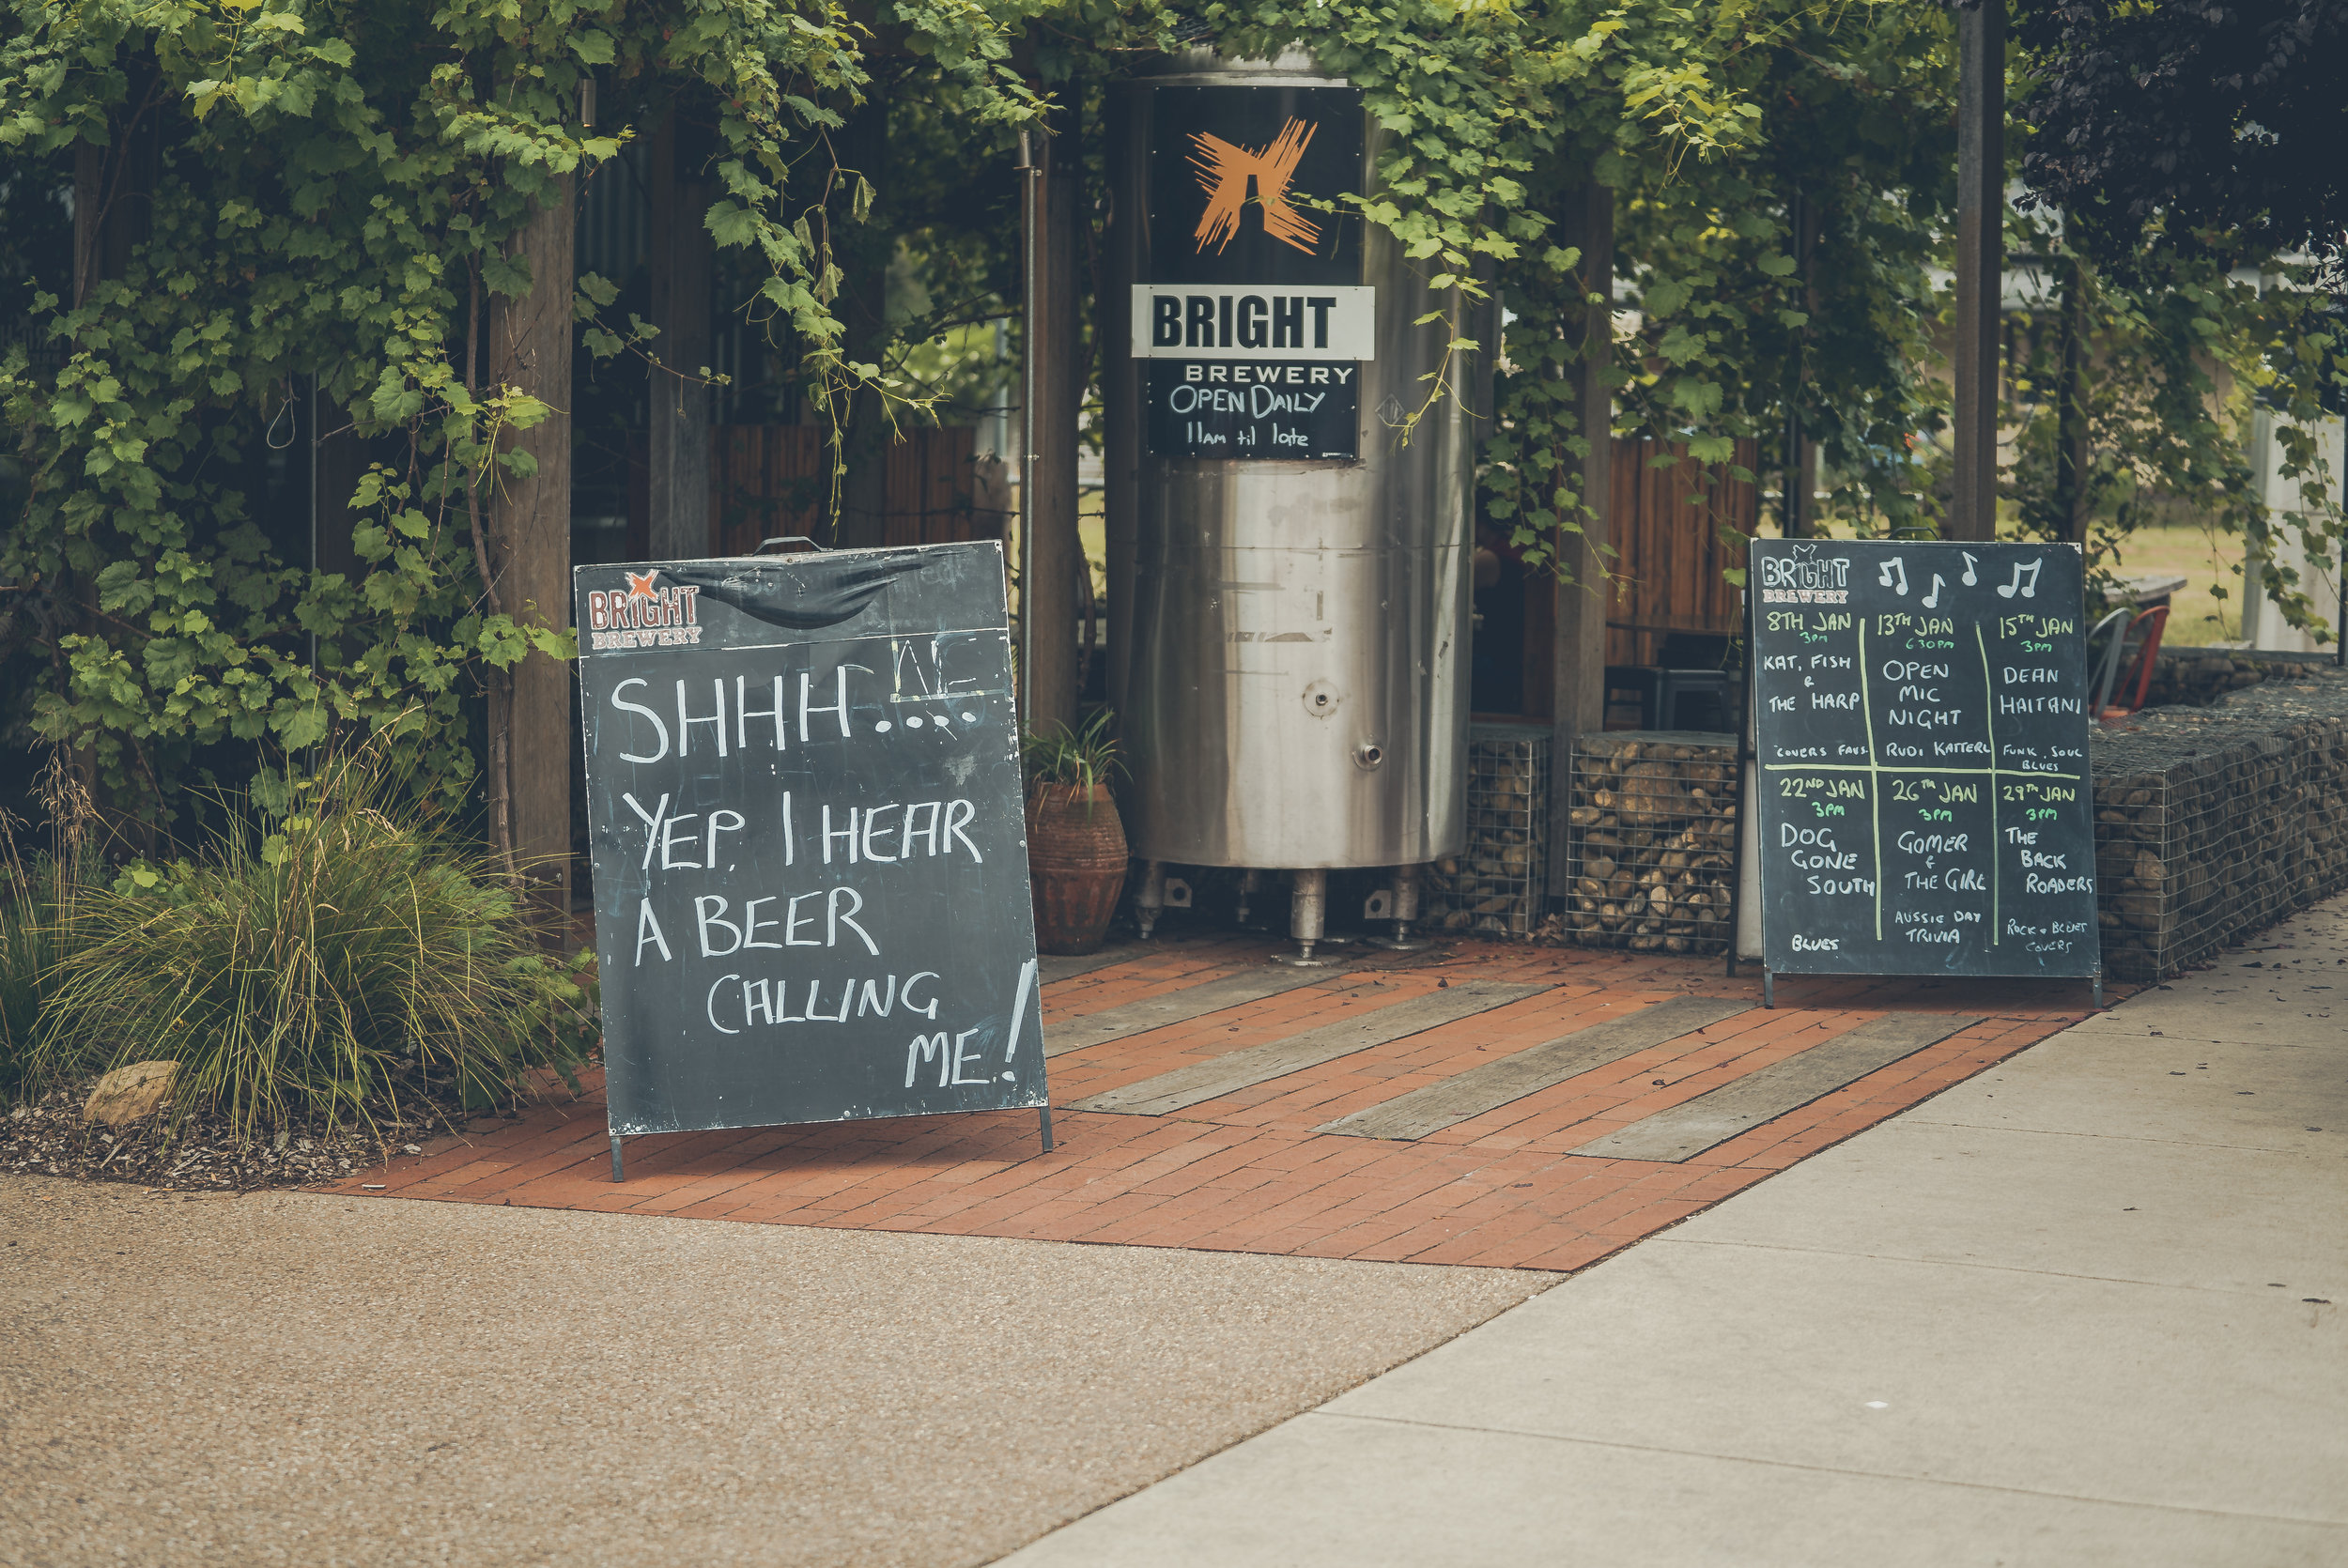 BRIGHT
BREWERY
OPEN DAILY
11AM til late
BRIGHT
BREWERY
SHHH....
YEP, I HEAR
A BEER
CALLING
ME!
BRIGHT
BREWERY
8TH JAN
3PM
KAT, FISH
&
THE HARP
COVERS FAVS
13TH JAN
6 30PM
OPEN
MIC
NIGHT
RUDI
15TH JAN
3PM
DEAN
HAITANI
FUNK, SOUL
BLUES
22ND JAN
3PM
DOG
GONE
SOUTH
BLUES
26TH JAN
3PM
GOMER
&
THE GIRL
AUSSIE DAY
TRIVIA
29TH JAN
3PM
THE
BACK
ROADERS
ROCK & BLUES
COVERS